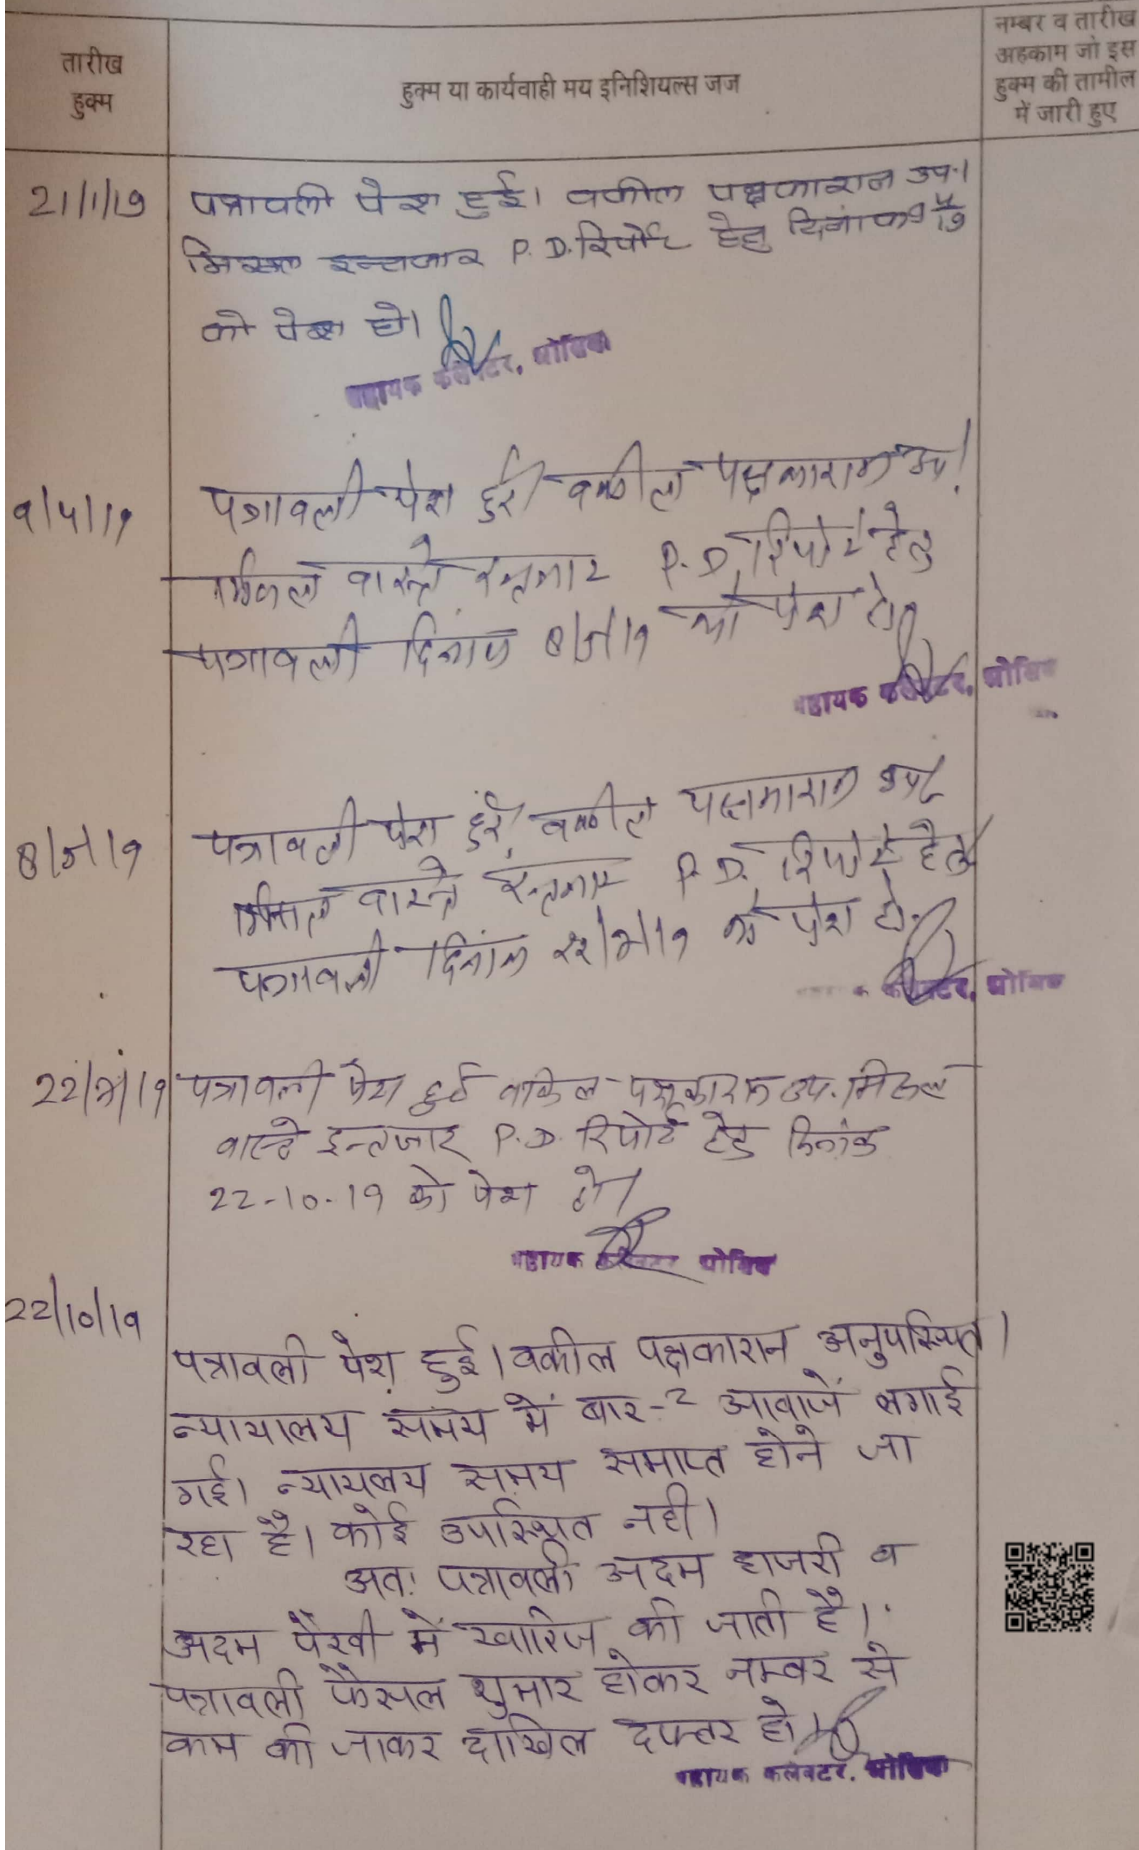 तारीख
हुक्म
हुक्म या कार्यवाही मय इनिशियल्स जज
नम्बर व तारीख
अहकाम जो इस
हुक्म की तामील
में जारी हुए
21/1/19
पत्रावली पेश हुई। वकील पक्षकारान उप.।
मिसल इन्तजार P.D. रिपोर्ट हेतु दिनांक
को पेश हो।
सहायक कलेक्टर,
9/4/19
पत्रावली पेश हुई वकील पक्षकारान उप।
मिसल वास्ते इन्तजार P.D. रिपोर्ट हेतु
पत्रावली दिनांक को पेश हो।
सहायक कलेक्टर,
पत्रावली पेश हुई वकील पक्षकारान उप
मिसल वास्ते इन्तजार P.D. रिपोर्ट हेतु
पत्रावली दिनांक को पेश हो।
कलेक्टर,
पत्रावली पेश हुई वकिल पक्षकारान उप. मिसल
वास्ते इन्तजार P.D. रिपोर्ट हेतु दिनांक
22-10-19 को पेश हो।
सहायक
22/10/19
पत्रावली पेश हुई। वकील पक्षकारान अनुपस्थित।
न्यायालय समय में बार-2 आवाजें लगाई
गई। न्यायलय समय समाप्त होने जा
रहा है। कोई उपस्थित नही।
अतः पत्रावली अदम हाजरी व
अदम पैरवी में खारिज की जाती है।
पत्रावली फैसल शुमार होकर नम्बर से
कम की जाकर दाखिल दफ्तर हो।
सहायक कलेक्टर.